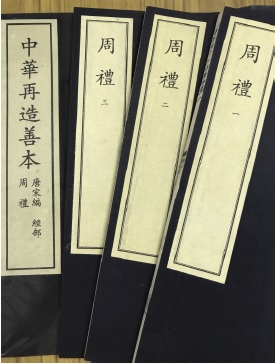 周禮 一
周禮 二
周禮 三
中華再造善本
唐宋編 經部
周禮